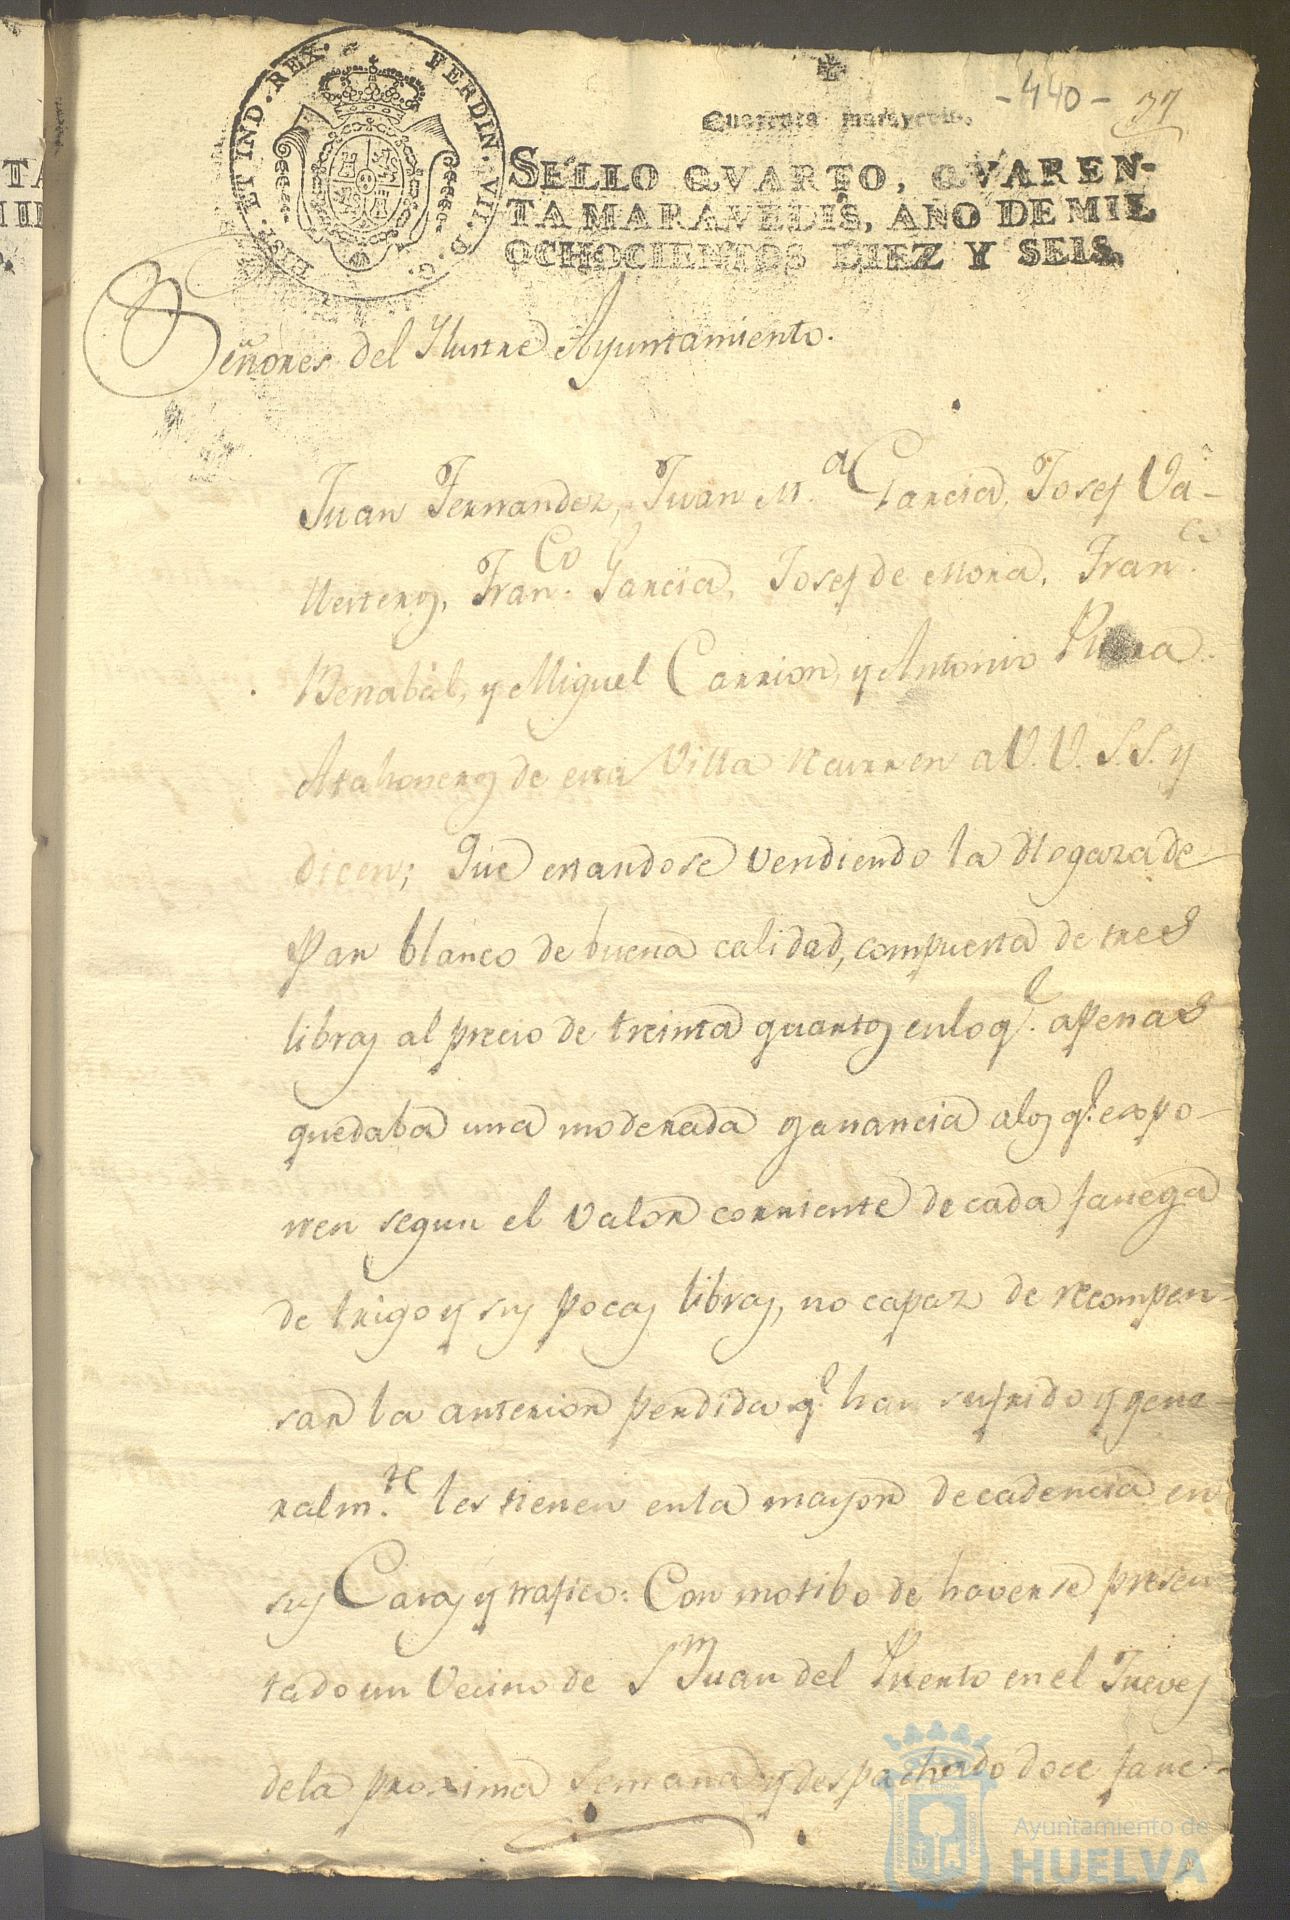 -440- 37
Quarenta maravedis.
SELLO QVARTO, QVAREN-
TA MARAVEDIS, AÑO DE MIL
OCHOCIENTOS DIEZ Y SEIS.
FERDIN. VII. D. G. HISP. ET IND. REX.
Señores del Ilustre Ayuntamiento.
Juan Fernandez, Juan M.ª Garcia, Josef Va-
llesteros, Fran.co Garcia, Josef de Mora, Fran.co
Benabál, y Miguel Carrion, y Antonio
Atahoneros de esta Villa recurren a V.V. S.S. y
dicen; Que estandose vendiendo la Hogaza de
Pan blanco de buena calidad, compuesta de tres
libras al precio de treinta quartos en lo q.e apenas
quedaba una moderada ganancia a los q.e expo-
nen segun el valor corriente de cada fanega
de trigo y sus pocas libras, no capaz de recompen-
sar la anterior perdida q.e han sufrido y gene-
ralm.te les tienen en la mayor decadencia en
sus Casas y trafico: Con motibo de haverse presen
tado un Vecino de S.n Juan del Puerto en el Jueves
de la proxima semana y despachado doce fane-
Ayuntamiento de
HUELVA